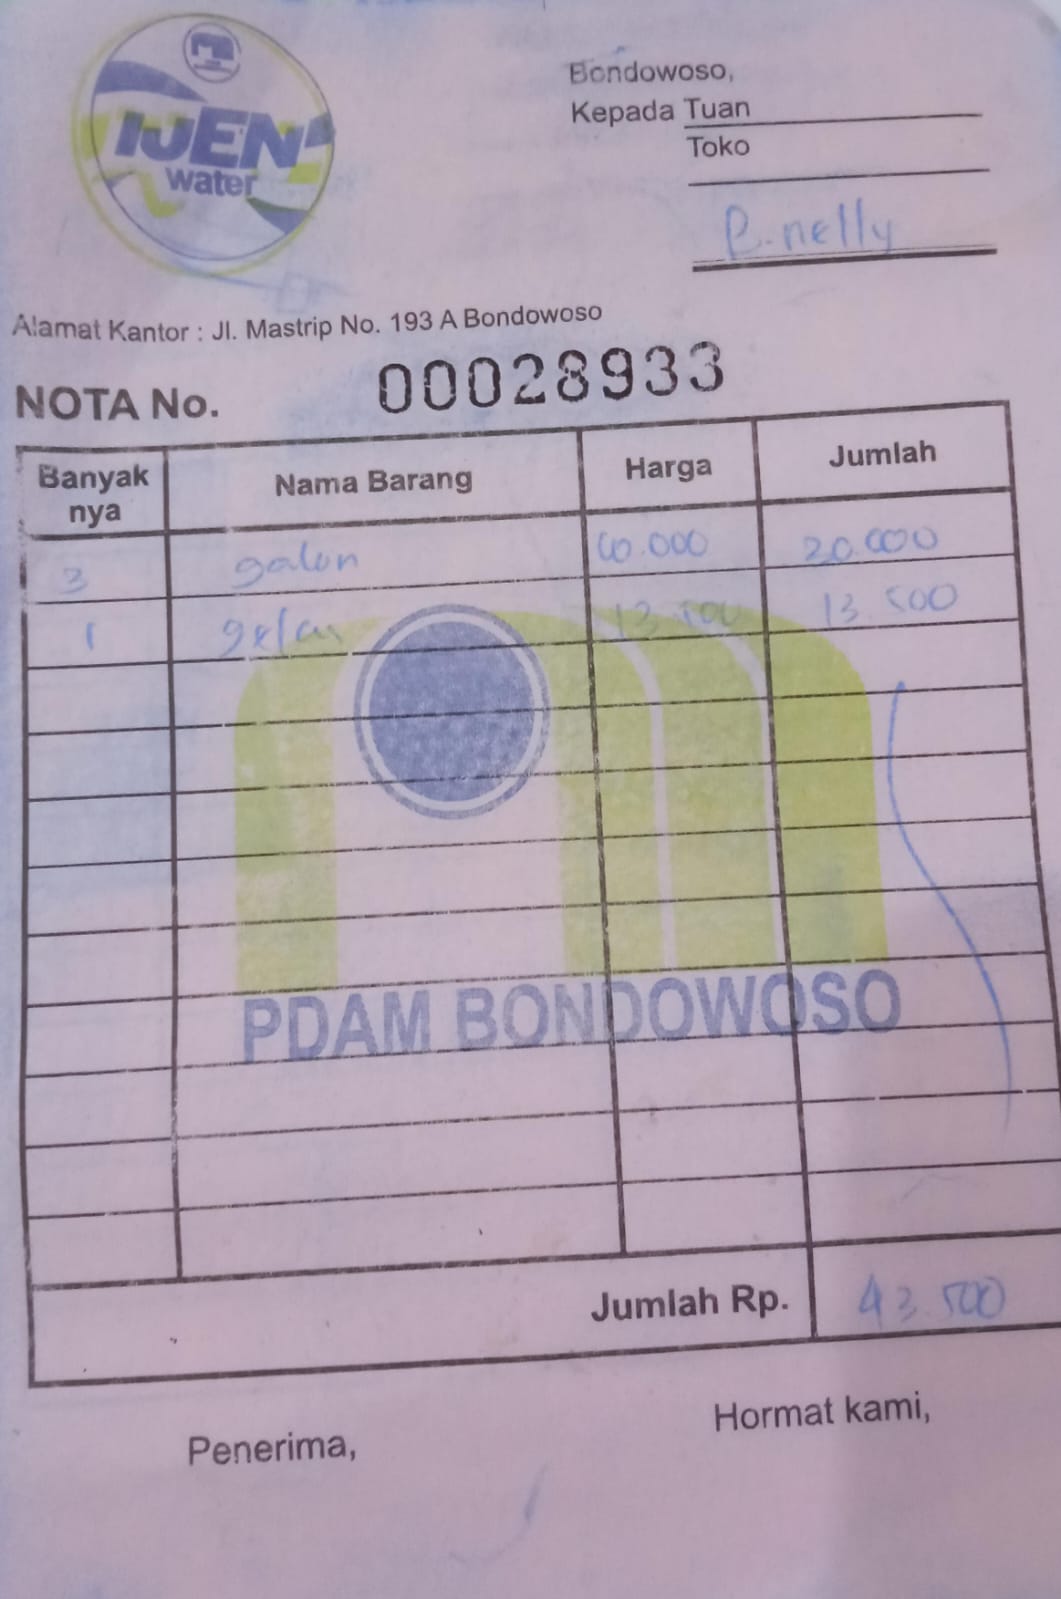 IJEN
water
Bondowoso,
Kepada Tuan
Toko
P. nelly
Alamat Kantor : Jl. Mastrip No. 193 A Bondowoso
NOTA No. 00028933
Banyak nya Nama Barang Harga Jumlah
3 galon 10.000 20.000
1 gelas 13.500 13.500
PDAM BONDOWOSO
Jumlah Rp. 43.500
Penerima, Hormat kami,